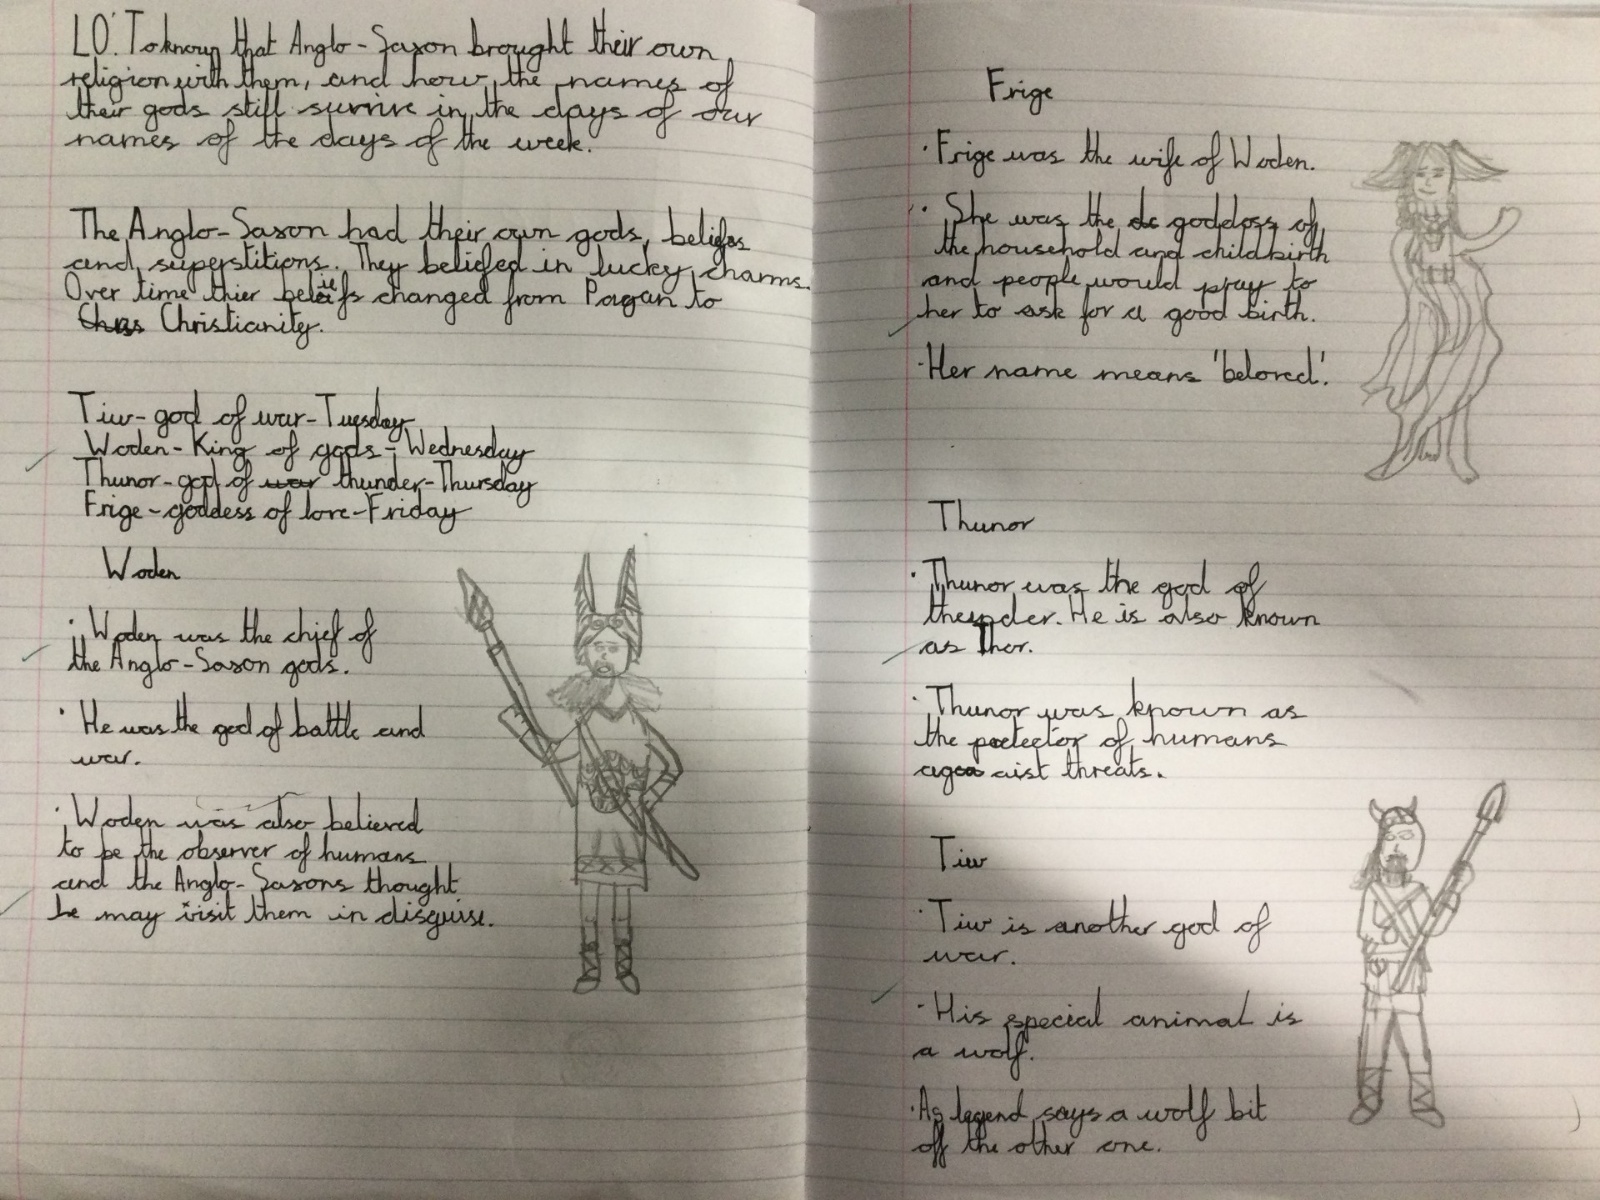 LO: To know that Anglo-Saxon brought their own
religion with them, and how the names of
their gods still survive in the days of our
names of the days of the week.
The Anglo-Saxon had their own gods, beliefs
and superstitions. They beliefed in lucky charms.
Over time thier beliefs changed from Pagan to
Christianity.
Tiw- god of war-Tuesday
Woden- King of gods- Wednesday
Thunor- god of war thunder-Thursday
Frige-goddess of love-Friday
Woden
· Woden was the chief of
the Anglo-Saxon gods.
· He was the god of battle and
war.
· Woden was also believed
to be the observer of humans
and the Anglo-Saxons thought
he may visit them in disguise.
Frige
· Frige was the wife of Woden.
· She was the de goddess of
the household and childbirth
and people would pray to
her to ask for a good birth.
· Her name means 'beloved'.
Thunor
· Thunor was the god of
thunder. He is also known
as Thor.
· Thunor was known as
the potector of humans
threats.
Tiw
· Tiw is another god of
war.
· His special animal is
a wolf.
· As legend says a wolf bit
off the other one.